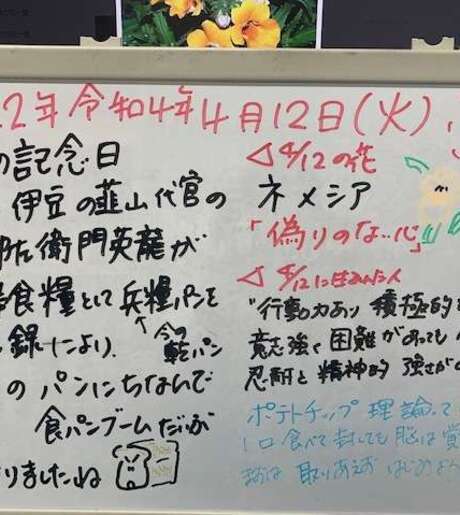 2年令和4年4月12日(火)
の記念日
伊豆の韮山代官の
左衛門英龍が
食糧として兵糧パンを
今の
乾パン
録したより、
のパンにちなんで
食パンブームだいぶ
りましたね
◁4/12の花
ネメシア
「偽りのない心」
◁4/12に生まれた人
"行動力あり 積極的
意志強く困難があっても
忍耐と精神的 強さが
ポテトチップ理論って
一口食べて封しても脳は覚
まずは取りあえずはじめ